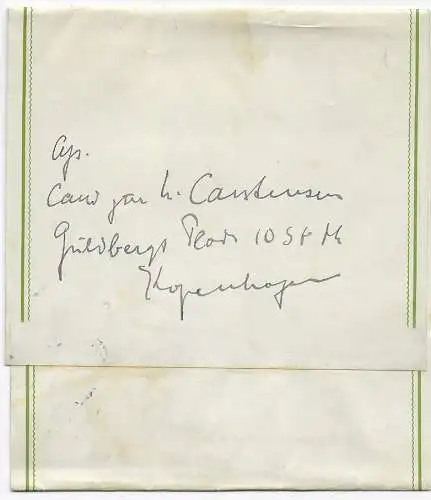 Aps.
Cand jur h. Carstensen
Guldbergs Plads 10 St th
Kopenhagen